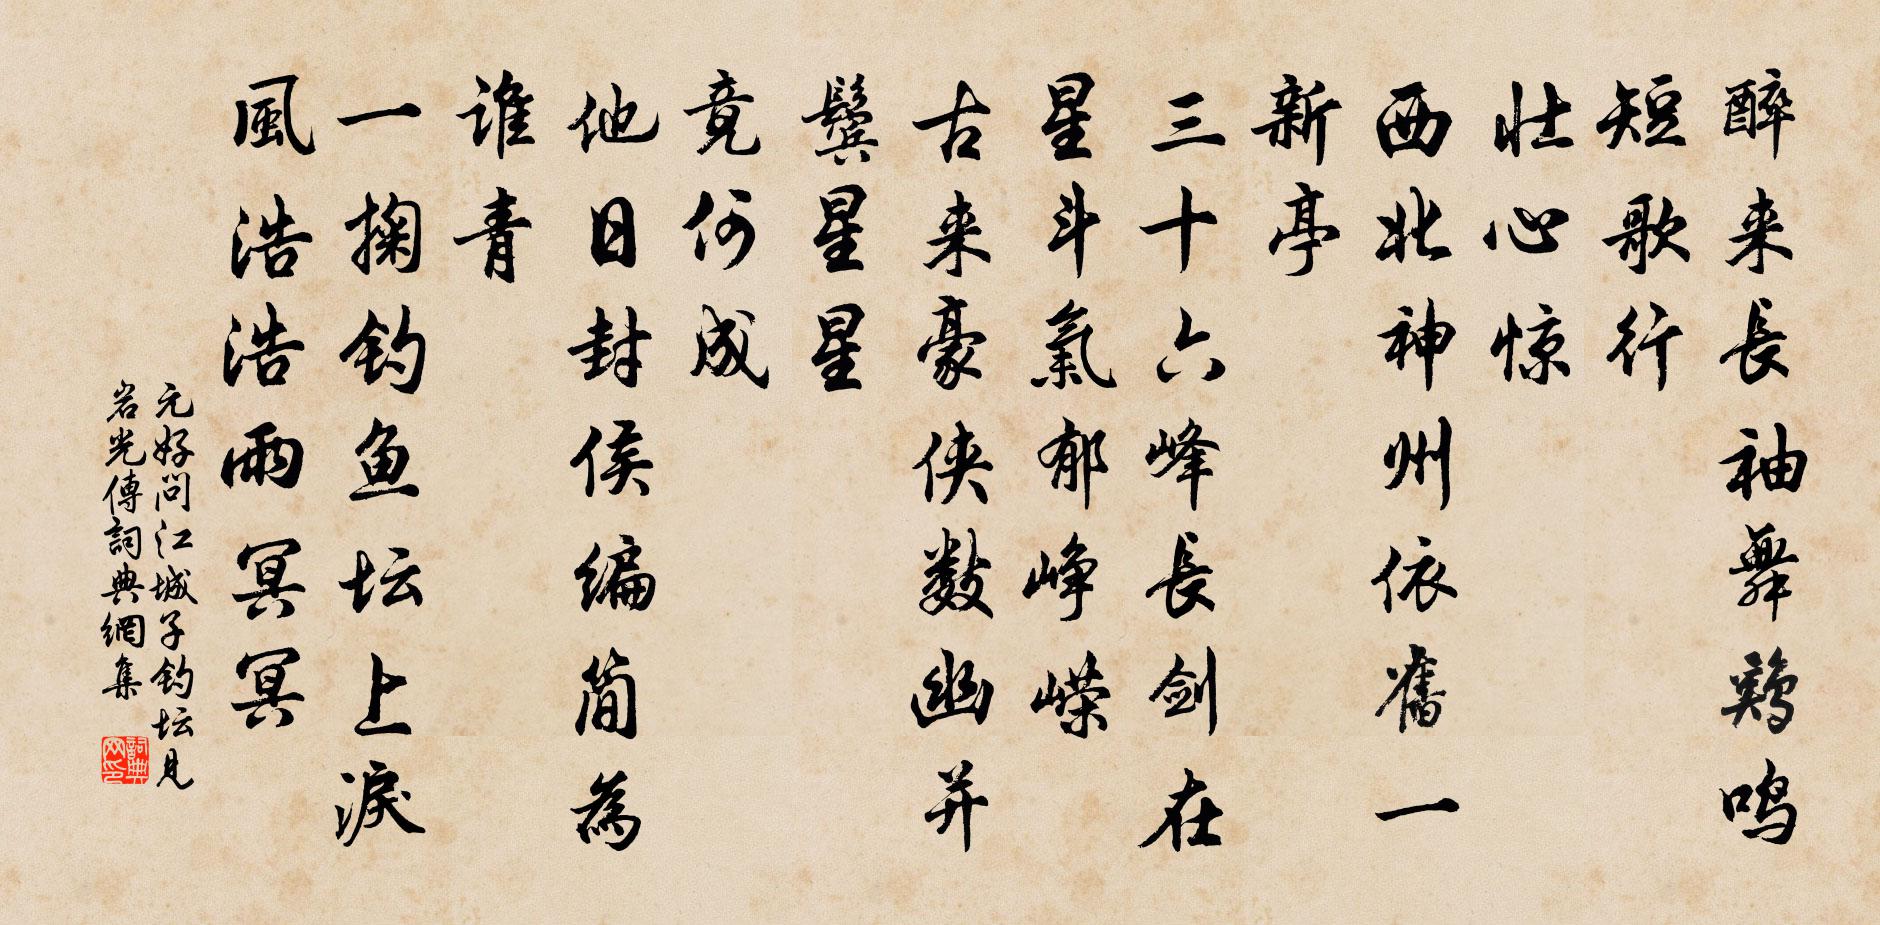 醉来長袖舞鶏鳴
短歌行
壮心惊
西北神州依舊一
新亭
三十六峰長劍在
星斗氣郁峥嵘
古来豪侠数幽并
鬓星星
竟何成
他日封侯编简為
谁青
一掬钓鱼坛上淚
風浩浩雨冥冥
元好问江城子钓坛見
岩光傳詞典網集
詞典
网印